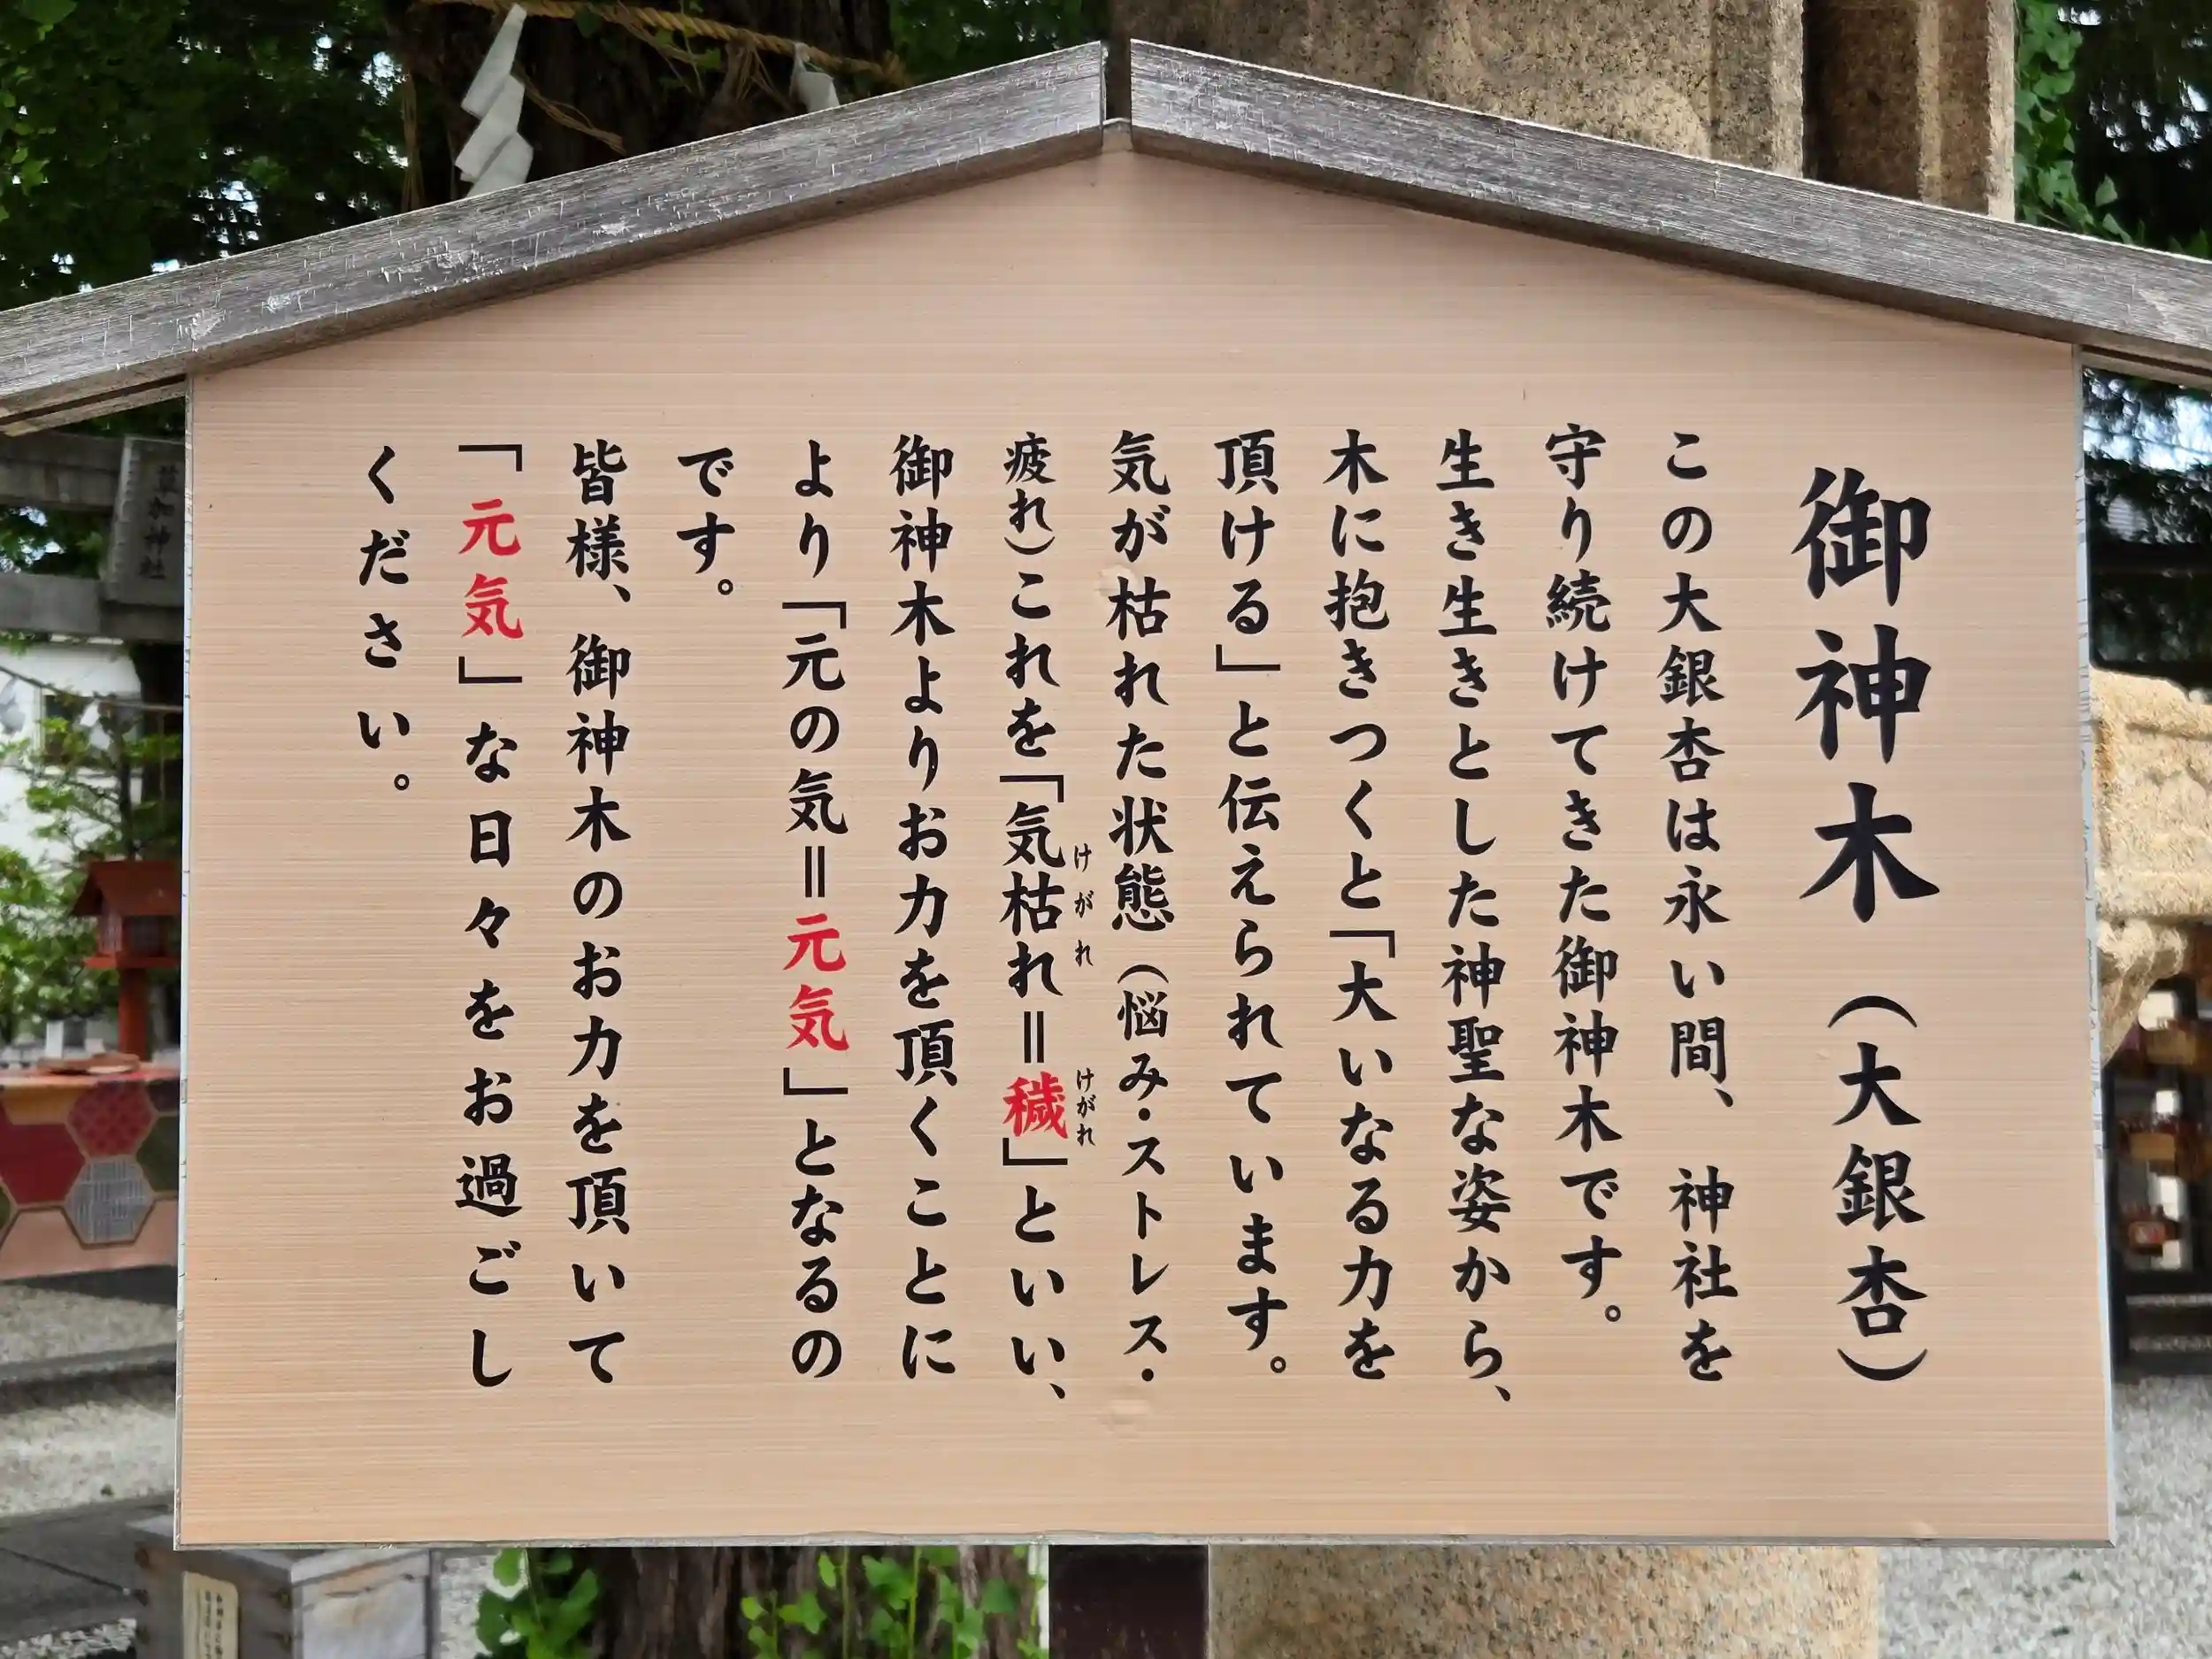 御神木（大銀杏）
この大銀杏は永い間、神社を
守り続けてきた御神木です。
生き生きとした神聖な姿から、
木に抱きつくと「大いなる力を
頂ける」と伝えられています。
気が枯れた状態（悩み・ストレス・
疲れ）これを「気枯れ＝穢」といい、
けがれ
けがれ
御神木よりお力を頂くことに
より「元の気＝元気」となるの
です。
皆様、御神木のお力を頂いて
「元気」な日々をお過ごし
ください。
草加神社